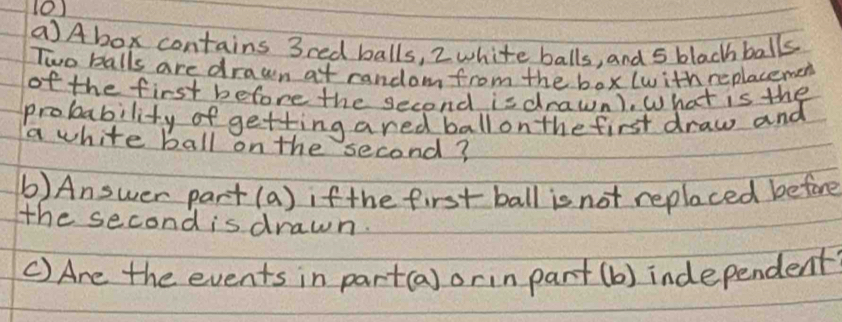 10)
a) A box contains 3 red balls, 2 white balls, and 5 black balls
Two balls are drawn at random from the box (with replacement
of the first before the second is drawn). What is the
probability of getting a red ball on the first draw and
a white ball on the second?
b) Answer part (a) if the first ball is not replaced before
the second is drawn.
c) Are the events in part (a) or in part (b) independent?